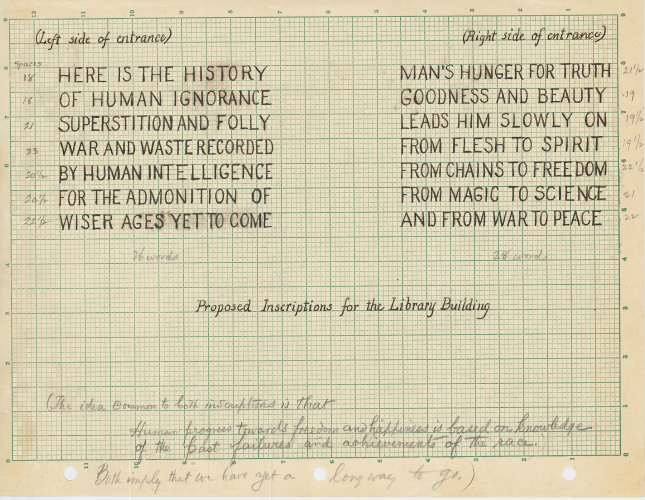 (Left side of entrance)
(Right side of entrance)
Spaces
18 HERE IS THE HISTORY
18 OF HUMAN IGNORANCE
21 SUPERSTITION AND FOLLY
23 WAR AND WASTE RECORDED
20½ BY HUMAN INTELLIGENCE
20½ FOR THE ADMONITION OF
22½ WISER AGES YET TO COME
26 words
MAN'S HUNGER FOR TRUTH 21½
GOODNESS AND BEAUTY 19
LEADS HIM SLOWLY ON 19½
FROM FLESH TO SPIRIT 19½
FROM CHAINS TO FREEDOM 22½
FROM MAGIC TO SCIENCE 21
AND FROM WAR TO PEACE 22
28 words
Proposed Inscriptions for the Library Building
(The idea common to both inscriptions is that
Human progress towards freedom and happiness is based on knowledge
of the past failures and achievements of the race.
Both imply that we have yet a long way to go.)